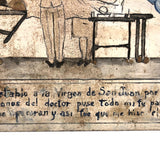 tablo a la Virgen de San Juan por
anos del doctor puse todo mi fe pa
operaran y así fue que me hiso el